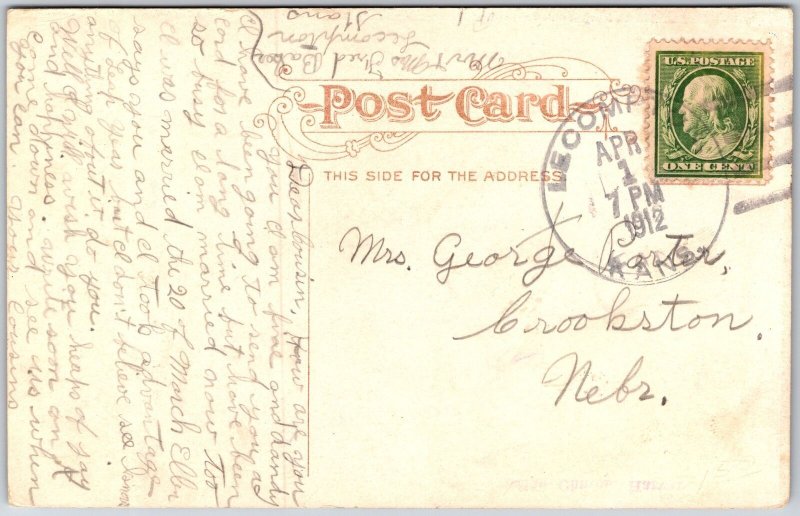 Post Card
THIS SIDE FOR THE ADDRESS
U.S. POSTAGE
ONE CENT
LECOMP
APR
1
7 PM
1912
KANS.
Mrs. George Porter,
Crookston,
Nebr.
Dear Cousin, How are you
you I am fine and dandy
I have been going to send you a
card for a long time but have been
so busy I am married now too
I was married the 20 of March
says you and I took advantage
of leap year but I don't believe
anything about it do you.
Well I will wish you heaps of
and happiness. write soon or
come down and see us when
you can. Your Cousins
Mr & Mrs Fred Baker
Lecompton
Kans
R 1